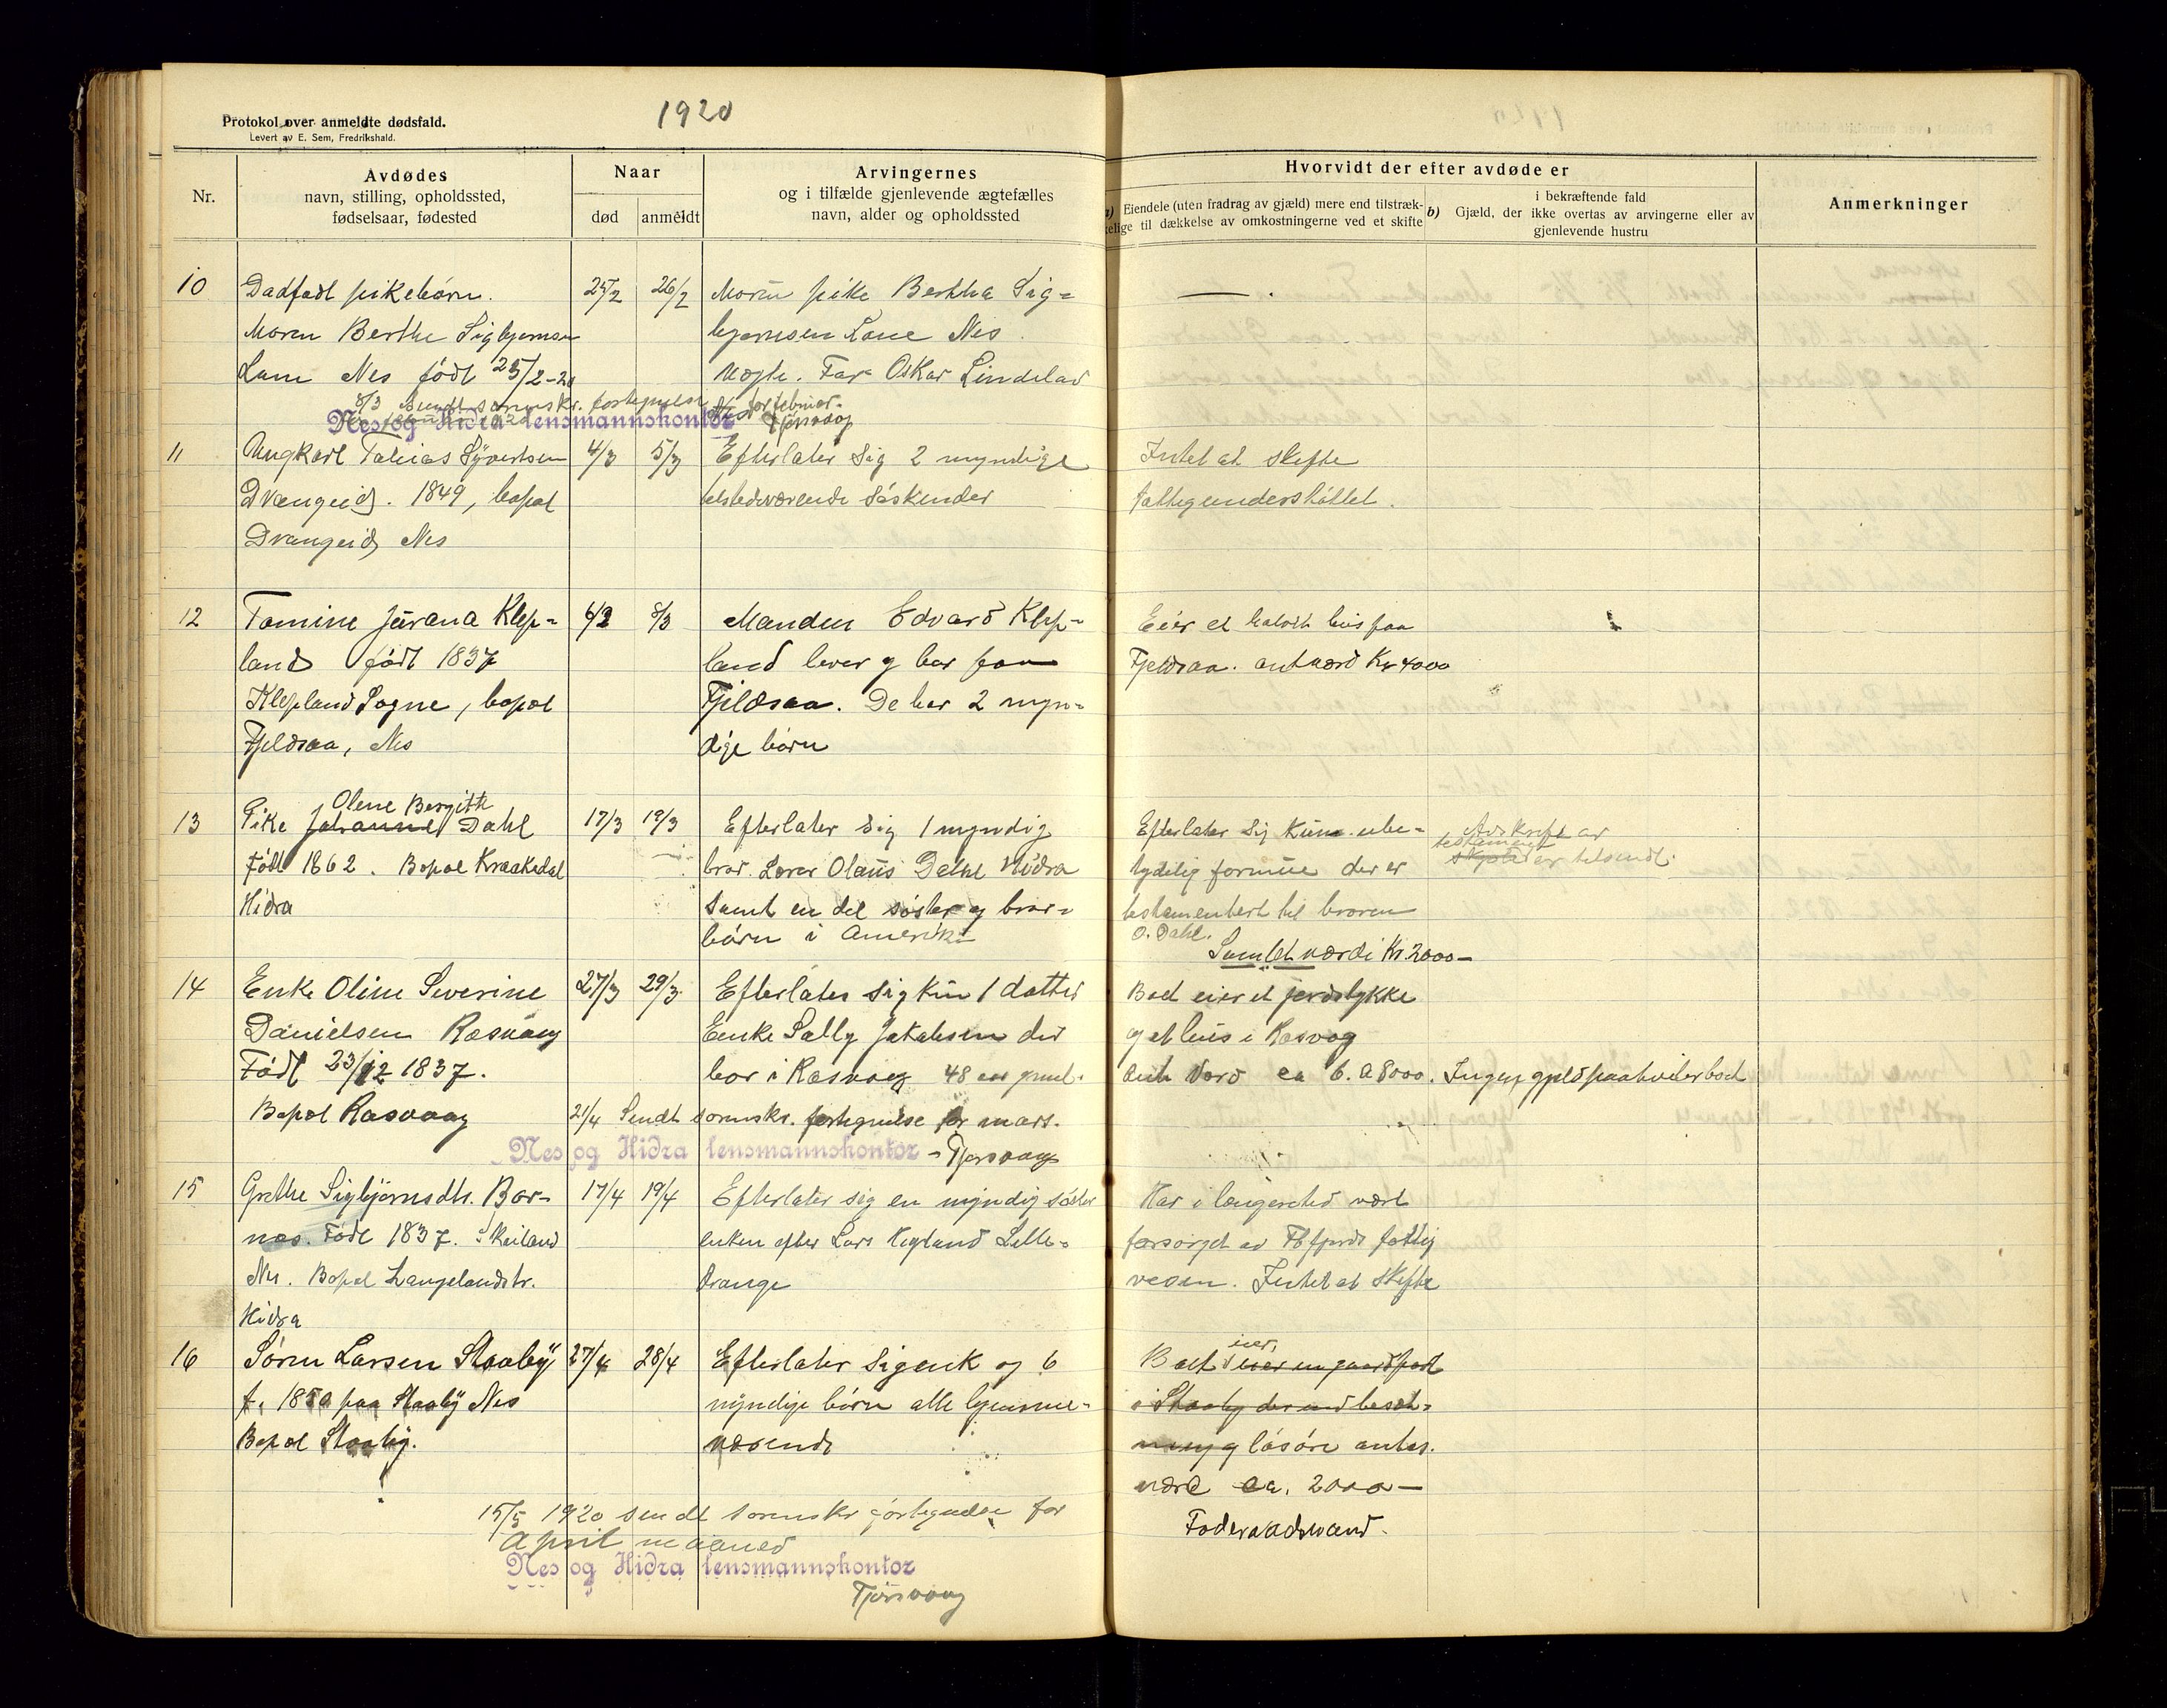 Protokol over anmeldte dødsfald.
Levert av E. Sem, Fredrikshald.
1920
Nr.
Avdødes
navn, stilling, opholdssted,
fødselsaar, fødested
Naar
død
anmeldt
Arvingernes
og i tilfælde gjenlevende ægtefælles
navn, alder og opholdssted
Hvorvidt der efter avdøde er
a) Eiendele (uten fradrag av gjæld) mere end tilstræk-
kelige til dækkelse av omkostningerne ved et skifte
b) i bekræftende fald
Gjæld, der ikke overtas av arvingerne eller av
gjenlevende hustru
Anmerkninger
10
Dødfødt pikebørn.
Moren Berthe Sigbjørnsen
Lune Nes født 25/2-20
25/2
26/2
Moren pike Bertha Sig-
bjørnsen Lone Nes.
ugift. Far Oskar Lindeland
Nes
—.
8/3 sendt sorenskr. fortegnelse for februar.
Nes og Hidra lensmannskontor
Tjørsvaag
11
Ungkarl Tobias Syvertsen
Drangeid. 1849, bopæl
Drangeid, Nes
4/3
5/3
Efterlater sig 2 myndige
tilstedeværende søskender
Intet at skifte
fattigunderstøttet.
12
Tomine Jørana Klep-
land født 1837
Klepland Søgne, bopæl
Fjeldsaa, Nes
6/3
8/3
Manden Edvard Klep-
land lever og bor paa
Fjeldsaa. De har 2 myn-
dige børn
Eier et halvdt hus paa
Fjeldsaa. ant værd Kr 4000
13
Olene Bergitte
Pike Johanne Dahl
Født 1862. Bopæl Kraakedal
Hidra
17/3
19/3
Efterlater sig 1 myndig
bror. Lærer Olaus Dahl Hidra
Samt en del søster og bror-
børn i Amerika
Efterlater sig kun ube-
tydelig formue der er
testamentert til broren
O. Dahl.
Samlet værdi Kr. 2000-
Avskrift av
testament
er tilsendt.
14
Enke Oline Severine
Danielsen Rasvaag
Født 23/12 1837.
Bopæl Rasvaag
27/3
29/3
Efterlater sig kun 1 datter
Enke Sally Jakobsen der
bor i Rasvaag 48 aar gml.
Boet eier et jordstykke
og et hus i Rasvag
Ant værd ca 6. a 8000.
Ingen gjeld paahviler boet
21/4 Sendt sorenskr. fortegnelse for mars.
Nes og Hidra lensmannskontor - Tjørsvaag
15
Grethe Sigbjørnsdtr. Bor-
nes. Født 1837. Skeiland
Nes. Bopæl Langelandstr.
Hidra
17/4
19/4
Efterlater sig en myndig søster
enken efter Lars Hegland Lille-
drange
Har i længere tid vært
forsørget av Flfjords fattig
vesen. Intet at skifte
16
Søren Larsen Staaby,
f. 1850 paa Staaby Nes
Bopæl Staaby.
27/4
28/4
Efterlater sig enk og 6
myndige børn alle hjemme-
værende
eier,
Boet eier en gaardpart
i Staaby der med besæt-
ning og løsøre antas.
værd ca. 2000-
Føderaadsmand.
15/5 1920 sendt sorenskr fortegnelse for
April maaned
Nes og Hidra lensmannskontor
Tjørsvaag